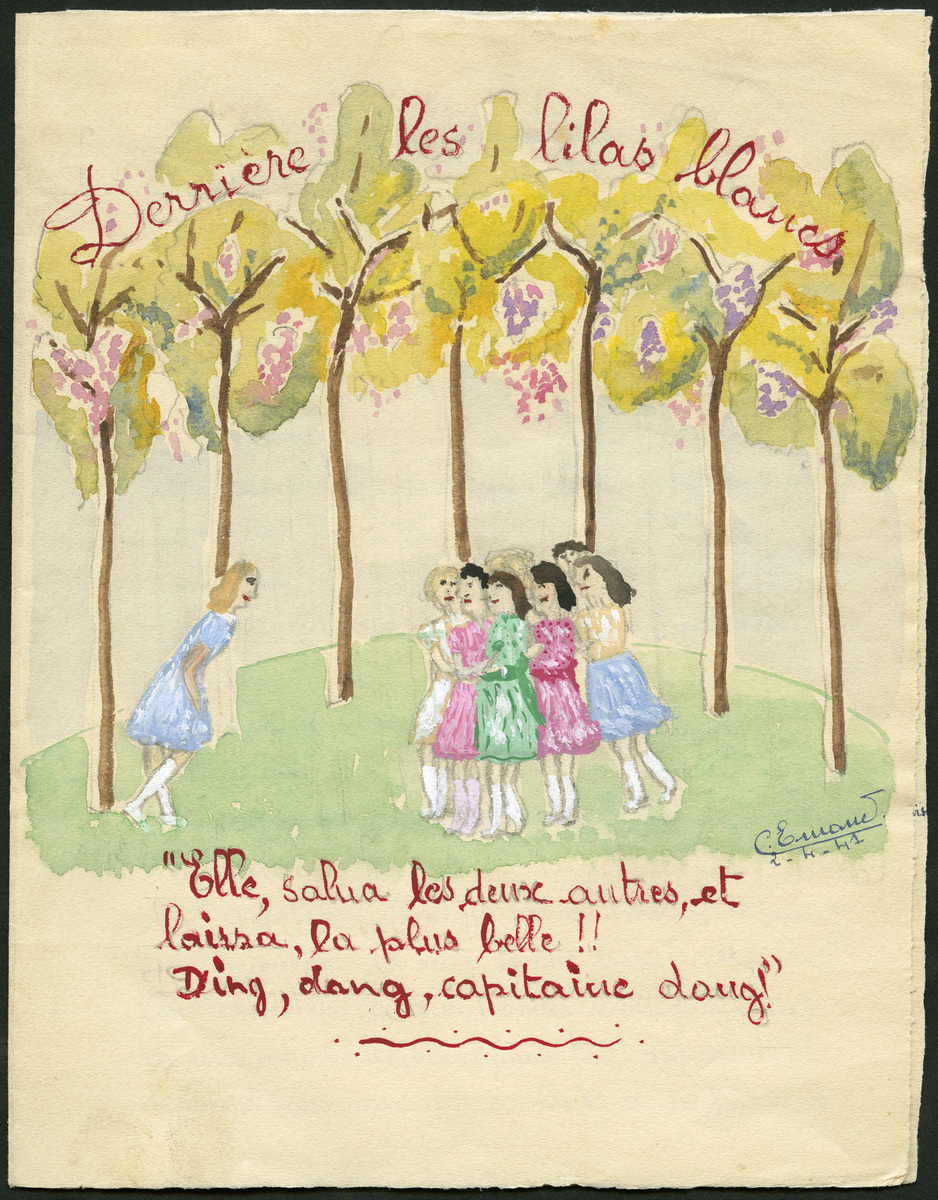 Derrière les lilas blancs
C. Emond.
2-4-41
"Elle, salua les deux autres, et
laissa, la plus belle !!
Ding, dang, capitaine dang!"